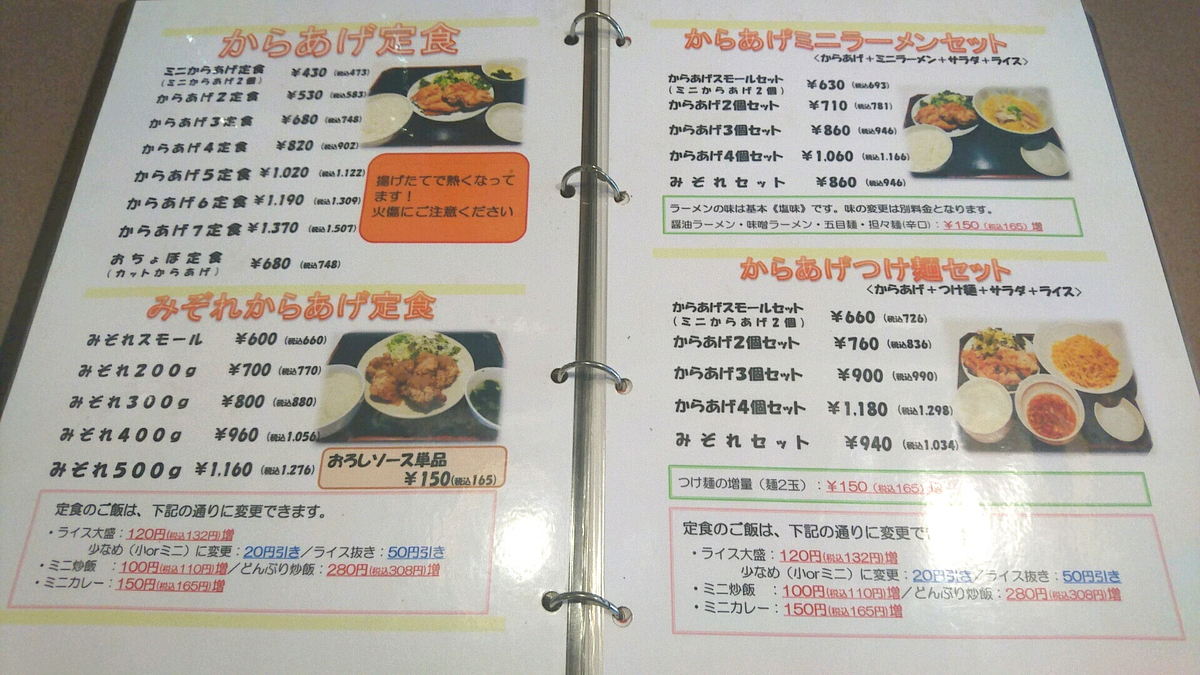 からあげ定食
ミニからあげ定食 ¥430 (税込473)
(ミニからあげ2個)
からあげ2定食 ¥530 (税込583)
からあげ3定食 ¥680 (税込748)
からあげ4定食 ¥820 (税込902)
からあげ5定食 ¥1.020 (税込1.122)
からあげ6定食 ¥1.190 (税込1.309)
からあげ7定食 ¥1.370 (税込1.507)
おちょぼ定食 ¥680 (税込748)
(カットからあげ)
揚げたてで熱くなって
ます！
火傷にご注意ください
みぞれからあげ定食
みぞれスモール ¥600 (税込660)
みぞれ200g ¥700 (税込770)
みぞれ300g ¥800 (税込880)
みぞれ400g ¥960 (税込1.056)
みぞれ500g ¥1.160 (税込1.276)
おろしソース単品
¥150(税込165)
定食のご飯は、下記の通りに変更できます。
・ライス大盛：120円(税込132円)増
少なめ（小orミニ）に変更：20円引き／ライス抜き：50円引き
・ミニ炒飯 ：100円(税込110円)増／どんぶり炒飯：280円(税込308円)増
・ミニカレー：150円(税込165円)増
からあげミニラーメンセット
<からあげ＋ミニラーメン＋サラダ＋ライス>
からあげスモールセット ¥630 (税込693)
(ミニからあげ2個)
からあげ2個セット ¥710 (税込781)
からあげ3個セット ¥860 (税込946)
からあげ4個セット ¥1.060 (税込1.166)
みぞれセット ¥860 (税込946)
ラーメンの味は基本《塩味》です。味の変更は別料金となります。
醤油ラーメン・味噌ラーメン・五目麺・担々麺(辛口)：¥150(税込165)増
からあげつけ麺セット
<からあげ＋つけ麺＋サラダ＋ライス>
からあげスモールセット ¥660 (税込726)
(ミニからあげ2個)
からあげ2個セット ¥760 (税込836)
からあげ3個セット ¥900 (税込990)
からあげ4個セット ¥1.180 (税込1.298)
みぞれセット ¥940 (税込1.034)
つけ麺の増量（麺2玉）：¥150(税込165)増
定食のご飯は、下記の通りに変更で
・ライス大盛：120円(税込132円)増
少なめ（小orミニ）に変更：20円引き／ライス抜き：50円引き
・ミニ炒飯 ：100円(税込110円)増／どんぶり炒飯：280円(税込308円)増
・ミニカレー：150円(税込165円)増